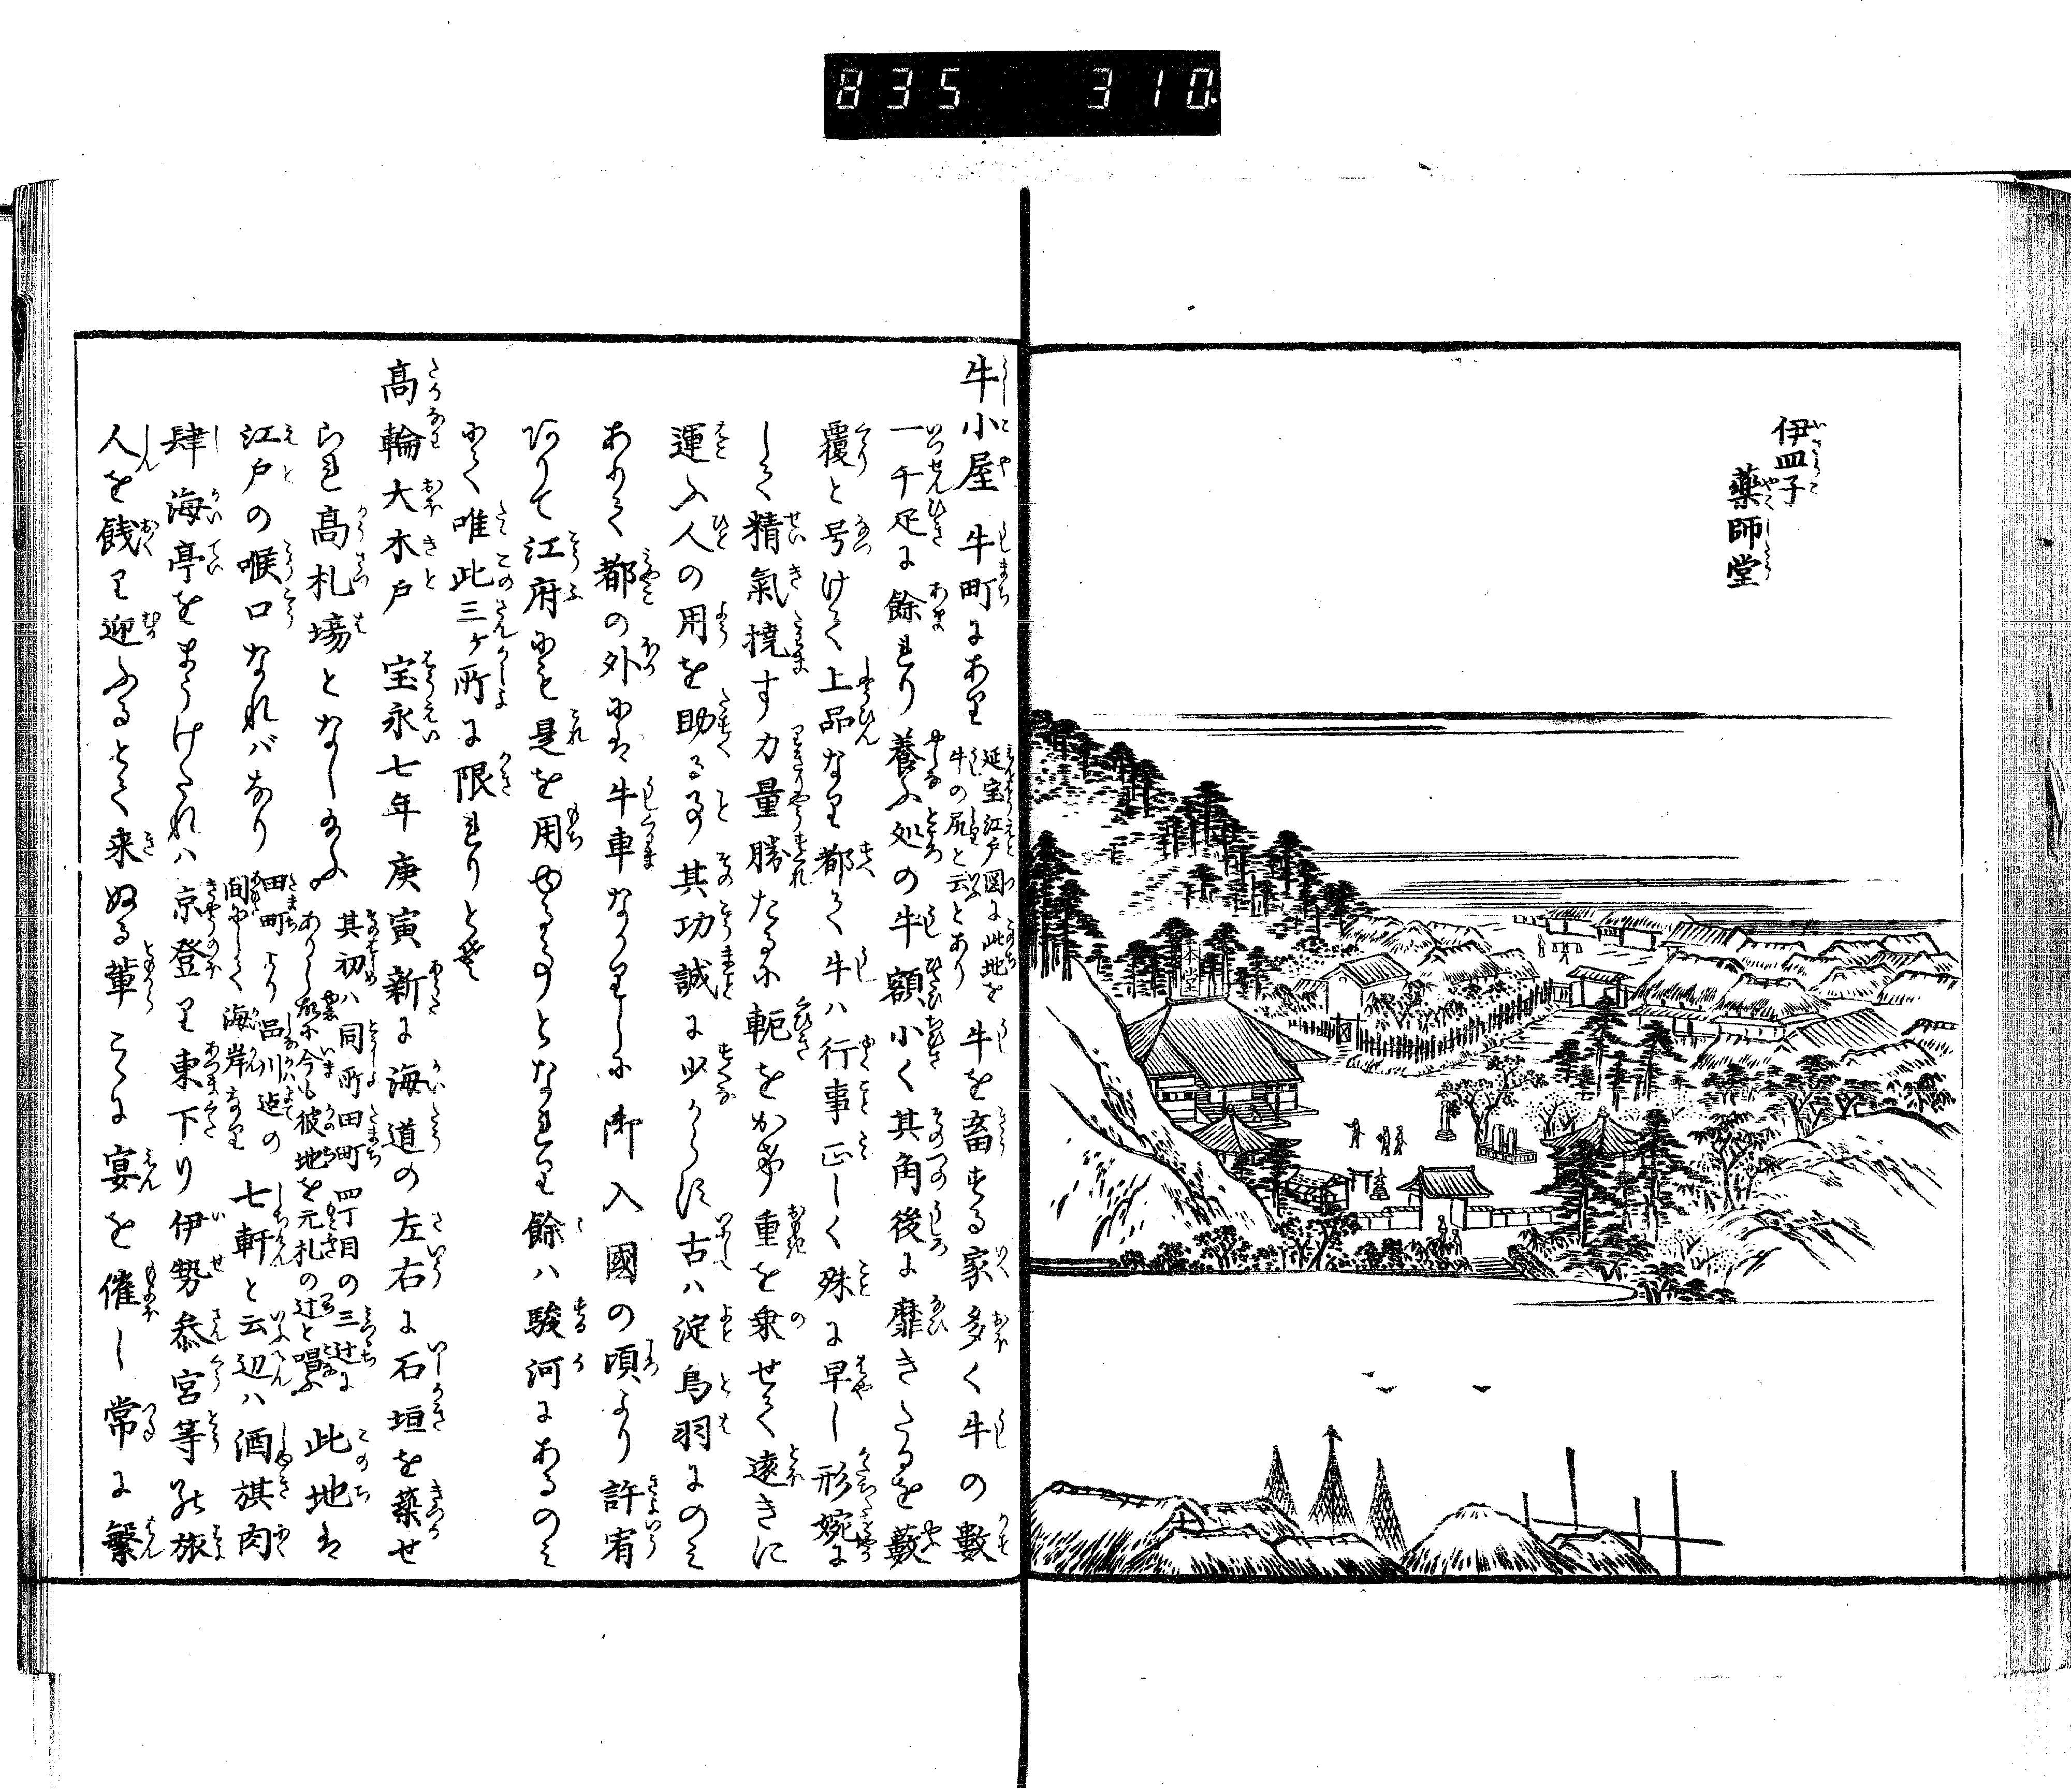 835 310
伊皿子
薬師堂
本堂
牛小屋 牛町にあり 延宝江戸図に此地を牛の尻と云とあり 牛を畜する家多く牛の數
一千疋に餘れり養ふ処の牛額小く其角後に靡きたるを藪
覆と号けて上品なり都て牛ハ行事正しく殊に早し形婉に
して精氣撓す力量勝たる小軛をかけ重を乗せて遠きに
運ふ人の用を助る事其功誠に少からす古ハ淀鳥羽にのミ
ありて都の外にハ牛車なかりしに御入國の頃より許宥
ありて江府にも是を用ゆるのとなれり餘ハ駿河にあるのミ
にて唯此三ヶ所に限れりとそ
髙輪大木戸 宝永七年庚寅新に海道の左右に石垣を築せ
られ髙札場となし給ふ 其初ハ同所田町四丁目の三辻にありし故に今も彼地を元札の辻と唱ふ 此地ハ
江戸の喉口なれバなり 田町より品川迄の間にして海岸なり 七軒と云辺ハ酒旗肉
肆海亭をまうけたれハ京登り東下り伊勢参宮等の旅
人を餞り迎ふるとて来ぬる輩こゝに宴を催し常に繁